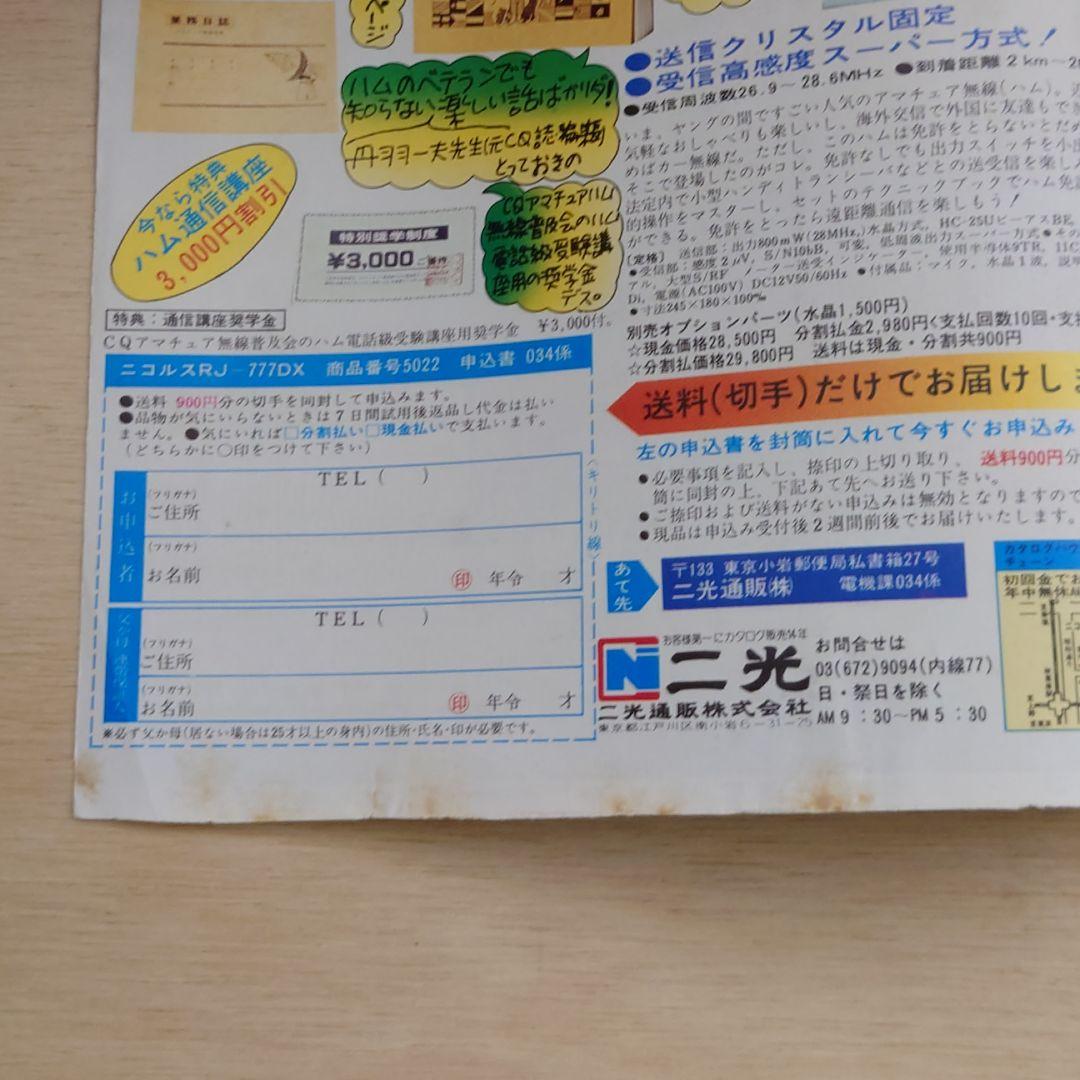 業務日誌
ページ
ハムのベテランでも
知らない楽しい話ばかりダ!
丹羽一夫先生(元CQ誌編集顧問)
とっておきの
今なら特典
ハム通信講座
3,000円割引
特別奨学制度
¥3,000
CQアマチュアハム
無線普及会のハム
電話級受験講
座用の奨学金
デス。
特典:通信講座奨学金
CQアマチュア無線普及会のハム電話級受験講座用奨学金 ¥3,000付。
ニコルスRJ-777DX 商品番号5022 申込書 034係
●送料 900円分の切手を同封して申込みます。
●品物が気にいらないときは7日間試用後返品し代金は払い
ません。●気にいれば□分割払い□現金払いで支払います。
(どちらかに○印をつけて下さい)
〈キリトリ線〉
お申込者
TEL( )
(フリガナ)
ご住所
(フリガナ)
お名前 印 年令 才
TEL( )
(フリガナ)
ご住所
(フリガナ)
お名前 印 年令 才
※必ず父か母(居ない場合は25才以上の身内)の住所・氏名・印が必要です。
●送信クリスタル固定
●受信高感度スーパー方式!
●受信周波数26.9~28.6MHz ●到着距離2km~2
いま、ヤングの間ですごい人気のアマチュア無線(ハム)。
気軽なおしゃべりも楽しいし、海外交信で外国に友達もでき
めばカー無線だ。ただし、このハムは免許をとらないとだめ
そこで登場したのがコレ。免許なしでも出力スイッチを小
法定内で小型ハンディトランシーバなどとの送受信を楽し
的操作をマスターし、セットのテクニックブックでハム免
ができる。免許をとったら遠距離通信を楽しもう!
[定格] 送信部:出力800mW(28MHz,)水晶方式, HC-25Uピーアス
●受信部:感度2μV, S/N10bB, 可変, 低周波出力スーパー方式●
アル, 大型S/RF メーター送受インジケーター, 使用半導体9TR, 11
Di, 電源(AC100V) DC12V50/60Hz ●付属品:マイク, 水晶1波, 説
●寸法245×180×100‰
別売オプションパーツ(水晶1,500円)
☆現金価格28,500円 分割払金2,980円<支払回数10回・支
☆分割払価格29,800円 送料は現金・分割共900円
送料(切手)だけでお届けしま
左の申込書を封筒に入れて今すぐお申込み
●必要事項を記入し、捺印の上切り取り、送料900円分
筒に同封の上、下記あて先へお送り下さい。
●ご捺印および送料がない申込みは無効となりますので
●現品は申込み受付後2週間前後でお届けいたします。
あて先
〒133 東京小岩郵便局私書箱27号
二光通販㈱ 電機課034係
お客様第一にカタログ販売14年
二光
二光通販株式会社
東京都江戸川区南小岩6-31-25
お問合せは
03(672)9094(内線77)
日・祭日を除く
AM9:30~PM5:30
カタログハウ
チェーン
初回金でお
年中無休